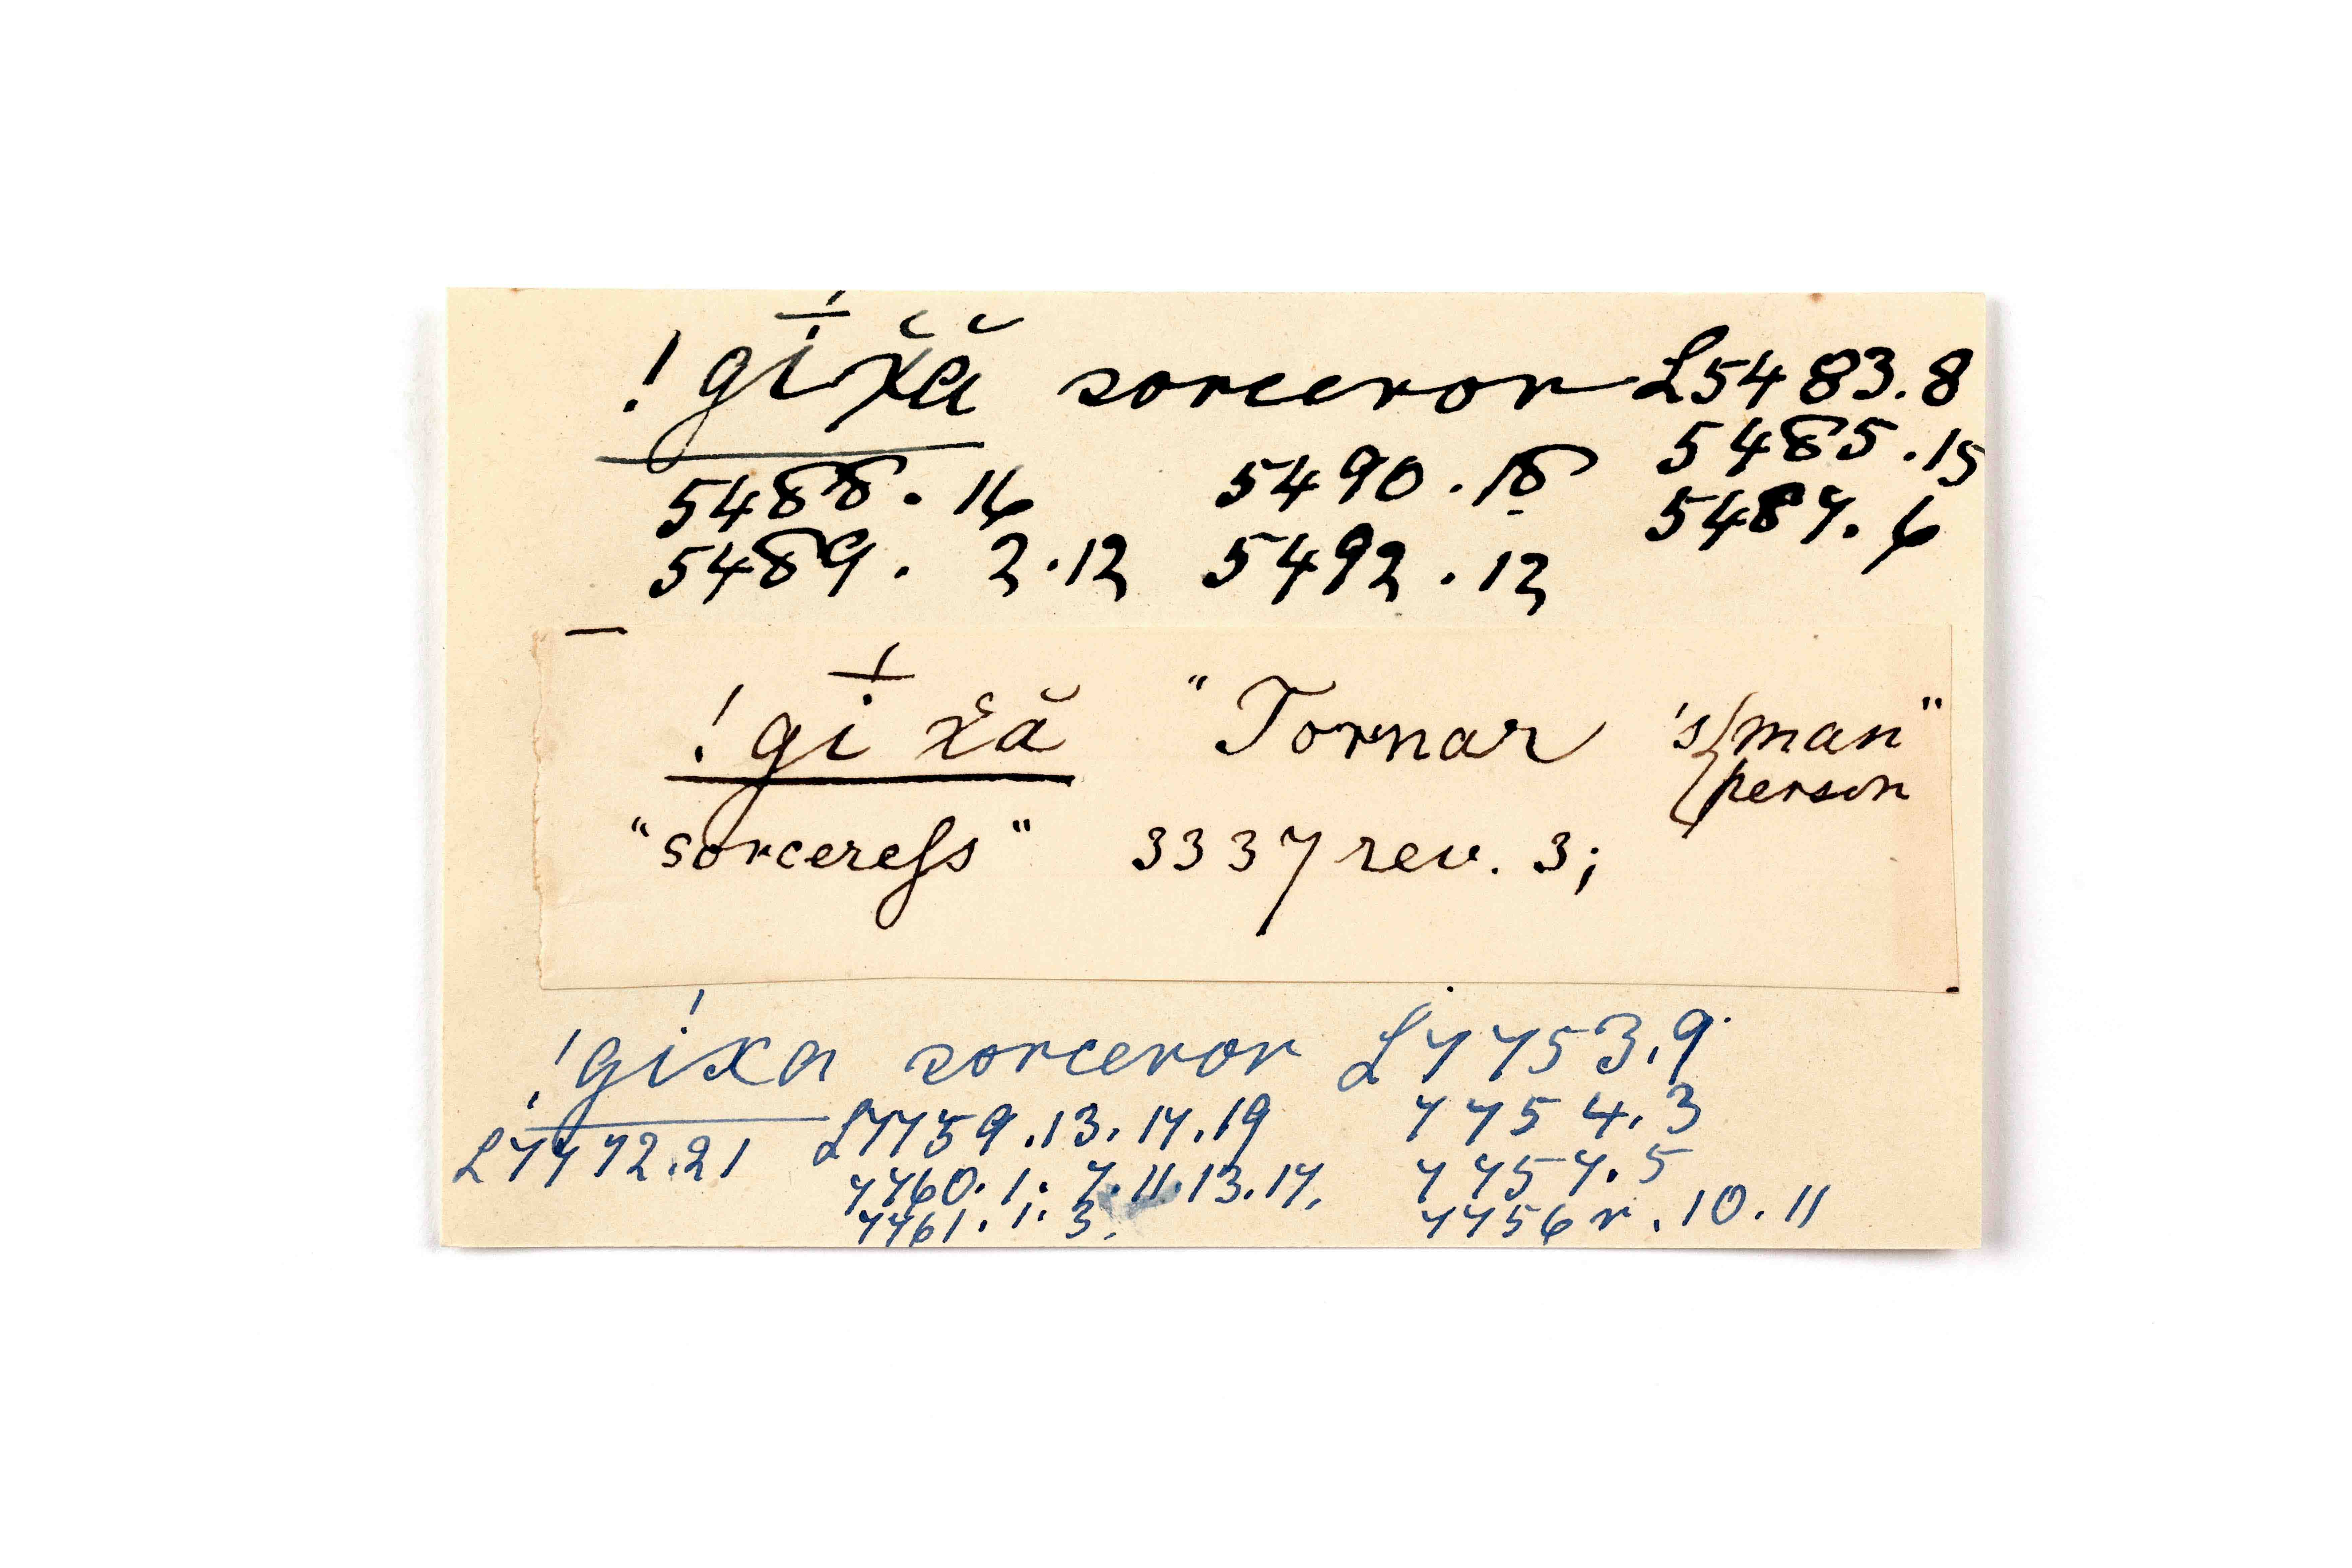 !gī́x̆ă sorceror L5483.8
5485.15
5488.16 5490.18 5487.6
5489. 2.12 5492.12
!gī́ x̆ă "Tornar 's{man"
{person
"sorceress" 3337 rev. 3;
!gíxa sorceror L7753.9
L7772.21 L7759.13.17.19 7754.3
7760. 1. 7. 11. 13. 17. 7757.5
7761. 1. 3. 7756 r. 10. 11